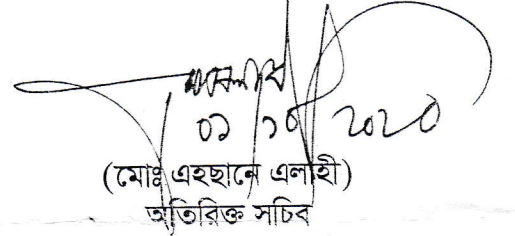 ০১ ১০ ২০২০
(মোঃ এহছানে এলাহী)
অতিরিক্ত সচিব